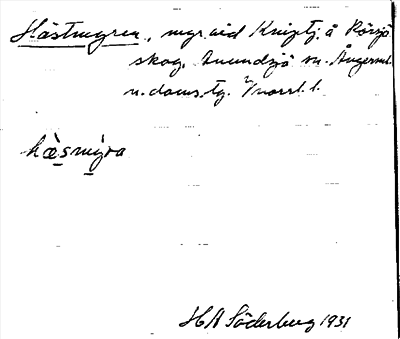 Hästmyren, myr vid Kniptj. å Rörsjö
skog, Anundsjö sn. Ångerml.
n. doms. tg. Vnorrl. l.
hæ̀smỳra
H A Söderberg 1931